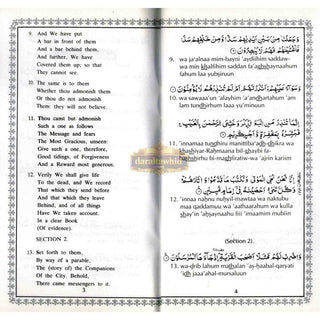 9. And We have put
A bar in front of them
And a bar behind them,
And further, We have
Covered them up; so that
They cannot see.
10. The same is to them
Whether thou admonish them
Or thou do not admonish
Them: they will not believe.
11. Thou canst but admonish
Such a one as follows
The Message and fears
The Most Gracious, unseen:
Give such a one, therefore,
Good tidings, of Forgiveness
And a Reward most generous.
12. Verily We shall give life
To the dead, and We record
That which they send before
And that which they leave
Behind, and of all things
Have We taken account.
In a clear Book
(Of evidence).
SECTION 2.
13. Set forth to them,
By way of a parable,
The (story of) the Companions
Of the City. Behold,
There came messengers to it.
3
وَجَعَلْنَا مِنْ بَيْنِ أَيْدِيهِمْ سَدًّا وَمِنْ خَلْفِهِمْ سَدًّا
فَأَغْشَيْنَاهُمْ فَهُمْ لَا يُبْصِرُونَ
9. wa ja'alnaa mim-bayni 'aydiihim saddaw-
wa min khalfihim saddan fa'aghshaynaahum
fahum laa yubsiruun
وَسَوَاءٌ عَلَيْهِمْ أَأَنْذَرْتَهُمْ أَمْ لَمْ تُنْذِرْهُمْ لَا يُؤْمِنُونَ
10. wa sawaaa'un 'alayhim 'a'andhartahum 'am
lam tundhirhum laa yu'minuun
إِنَّمَا تُنْذِرُ مَنِ اتَّبَعَ الذِّكْرَ وَخَشِيَ الرَّحْمٰنَ بِالْغَيْبِ
فَبَشِّرْهُ بِمَغْفِرَةٍ وَأَجْرٍ كَرِيمٍ
11. 'innamaa tundhiru manittaba'adh-dhikra wa
khashiyar-Rahmaana bil-ghaybi fa-
bashshirhu bi-maghfiratiw-wa 'ajrin kariim
إِنَّا نَحْنُ نُحْيِي الْمَوْتَى وَنَكْتُبُ مَا قَدَّمُوا وَآثَارَهُمْ
وَكُلَّ شَيْءٍ أَحْصَيْنَاهُ فِي إِمَامٍ مُبِينٍ
12. 'innaa nahnu nuhyil-mawtaa wa naktubu
maa qaddamuu wa 'aathaarahum wa kulla
shay'in 'ahsaynaahu fiii 'imaamim mubiin
(Section 2).
وَاضْرِبْ لَهُمْ مَثَلًا أَصْحَابَ الْقَرْيَةِ إِذْ جَاءَهَا الْمُرْسَلُونَ
13. wa-drib lahum mathalan 'as-haabal-qaryati
'idh jaaa'ahal-mursaluun
4